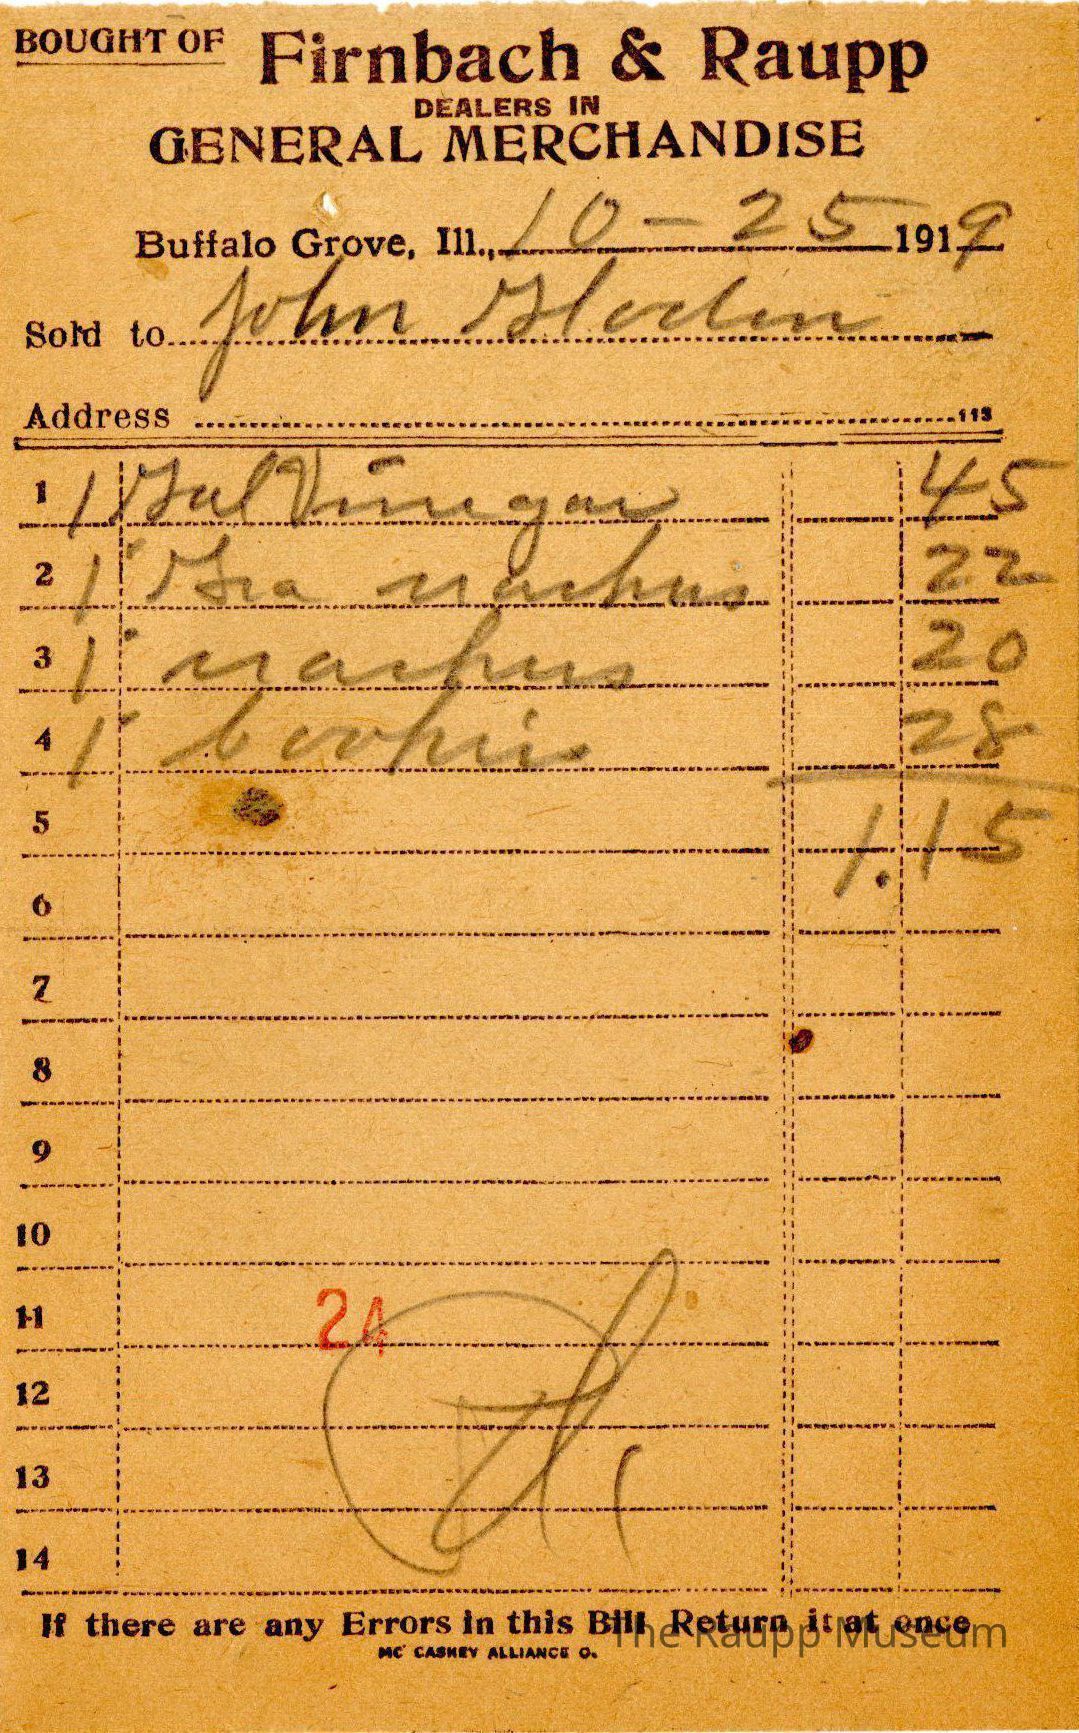 BOUGHT OF Firnbach & Raupp
DEALERS IN
GENERAL MERCHANDISE
Buffalo Grove, Ill., 10-25 1919
Sold to John
Address 113
1 1 Gal Vinegar 45
2 1 Gra 22
3 1 20
4 1 28
5 1.15
6
7
8
9
10
11 24
12
13
14
If there are any Errors in this Bill Return it at once
The Raupp Museum
MC CASKEY ALLIANCE O.